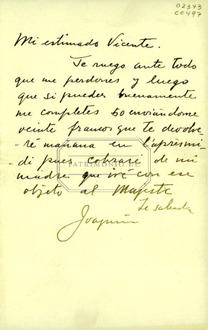 02343
C0497
Mi estimado Vicente.
Te ruego ante todo
que me perdones y luego
que si puedes buenamente
me completes 50 enviándome
veinte francos que te devolve-
ré mañana en l'après mi-
di pues cobraré de mi
madre que iré con ese
objeto al Majestic
Te saluda
Joaquín
PATRIMONIO